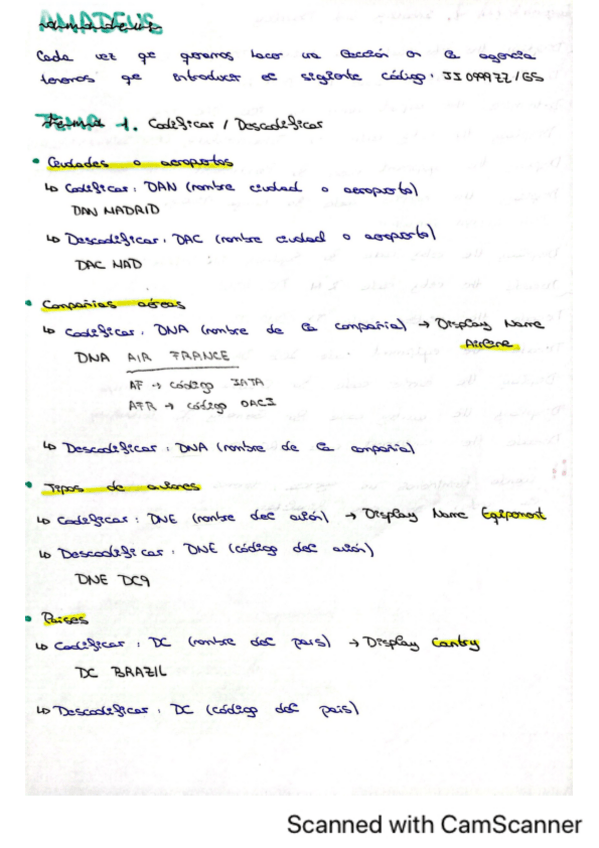 AMADEUS
Cada vez qe queremos hacer una acción en la agencia
tenemos qe introducir el siglente código: JI0999ZZ/GS
TEMA 1. Codificar / Descodificar
• Ciudades o aeropuertos
↳ Codificar: DAN (nombre ciudad o aeropuerto)
DAN MADRID
↳ Descodificar: DAC (nombre ciudad o aeropuerto)
DAC MAD
• Compañías aéreas
↳ Codificar: DNA (nombre de la compañía) → Display Name
Airline
DNA AIR FRANCE
AF → código IATA
AFR → código OACI
↳ Descodificar: DNA (nombre de la compañía)
• Tipos de aviones
↳ Codificar: DNE (nombre del avión) → Display Name Equipment
↳ Descodificar: DNE (código del avión)
DNE DC9
• Países
↳ Codificar: DC (nombre del país) → Display Cantry
DC BRAZIL
↳ Descodificar: DC (código del país)
Scanned with CamScanner